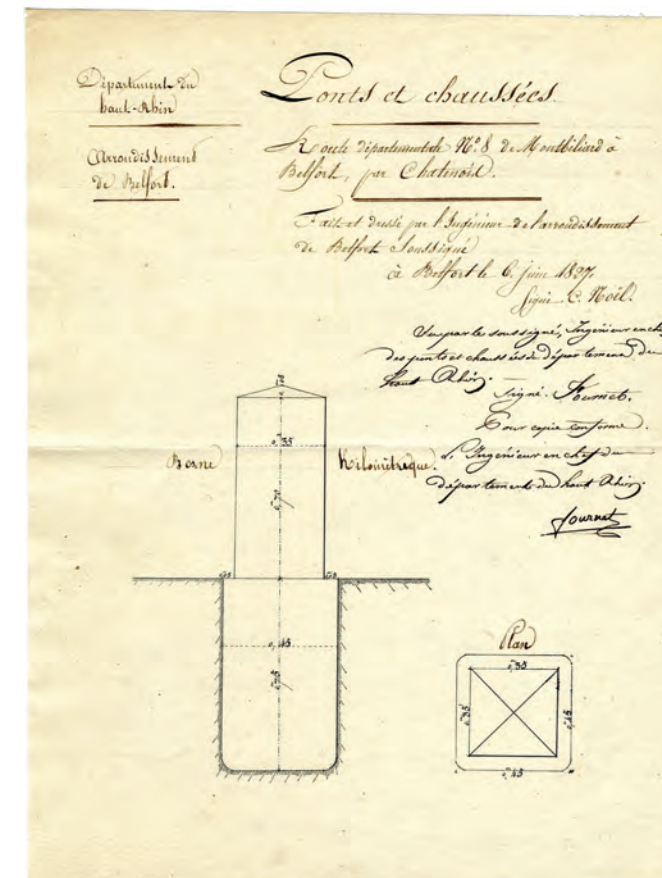 Département du
haut-Rhin
Arrondissement
de Belfort.
Ponts et chaussées.
Route départementale N.º 8 de Montbiliard à
Belfort, par Chatenois.
Fait et dressé par l'Ingénieur de l'arrondissement
de Belfort soussigné
à Belfort le 6. juin 1827.
Signé C. Noël.
Vu par le soussigné, Ingénieur en chef
des ponts et chaussées du département du
haut Rhin.
Signé. Fournet.
Pour copie conforme.
L'Ingénieur en chef du
département du haut Rhin.
Fournet
Borne
Kilométrique.
0,35
0,70
0,45
0,75
Plan
0,35
0,35
0,45
0,45